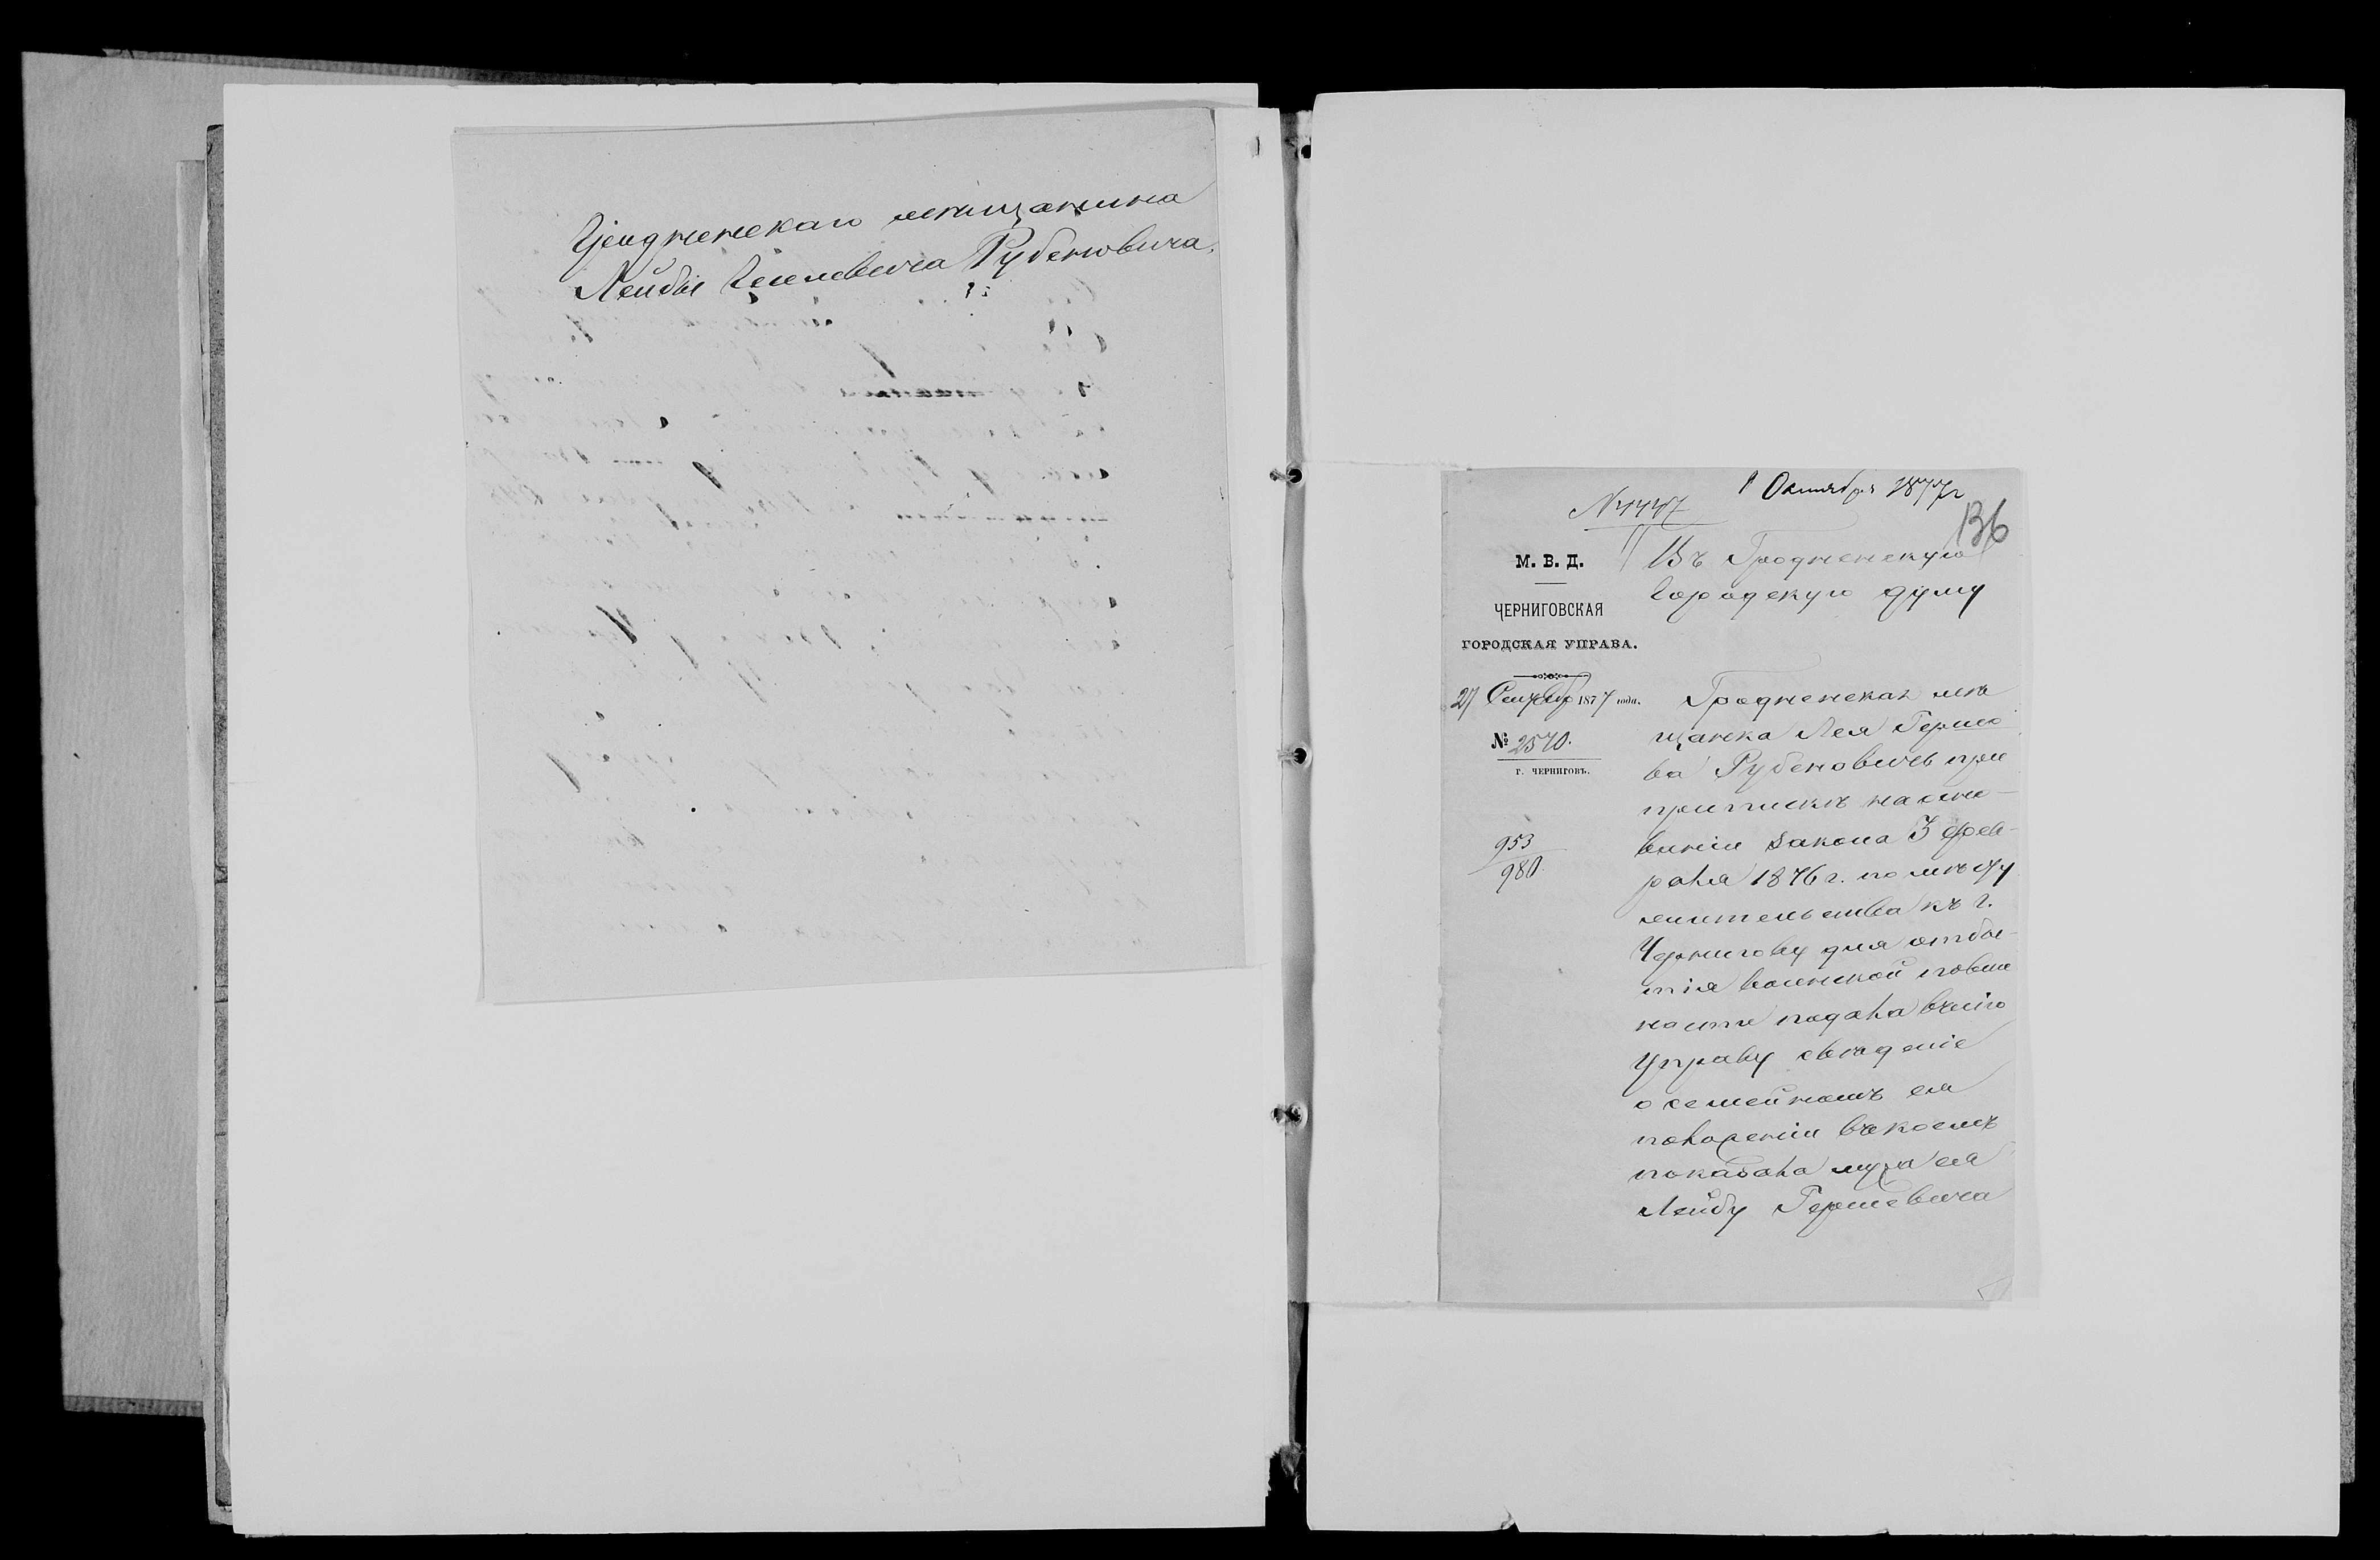 Гродненскаго мѣщанина
Лейбы Гецелевича Рубеновича.
1 Октября 1877 г
№ 4447
136
М. В. Д.
ЧЕРНИГОВСКАЯ
ГОРОДСКАЯ УПРАВА.
27 Сентября 1877 года.
№ 2570.
г. ЧЕРНИГОВЪ.
953
980
Въ Гродненскую
Городскую думу
Гродненская мѣ
щанка Лея Гершо
ва Рубеновичъ при
припискѣ на осно-
ваніи закона 3 фев-
раля 1876 г. по мѣсту
жительства къ г.
Чернигову для отбы-
тія воинской повин
ности подала въ сію
Управу сведеніе
о семейномъ ея
положеніи въ коемъ
показала мужа ея
Лейбу Гершевича